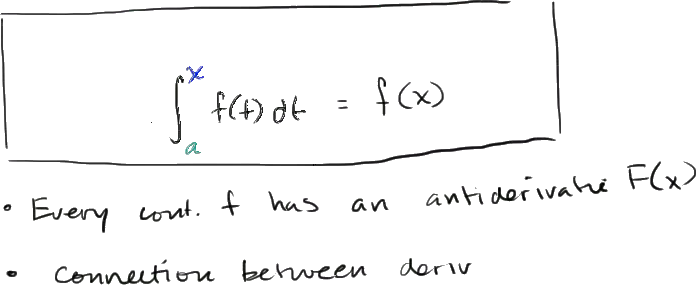 ∫ₐˣ f(t) dt = f(x)
• Every cont. f has an antiderivative F(x)
• Connection between deriv